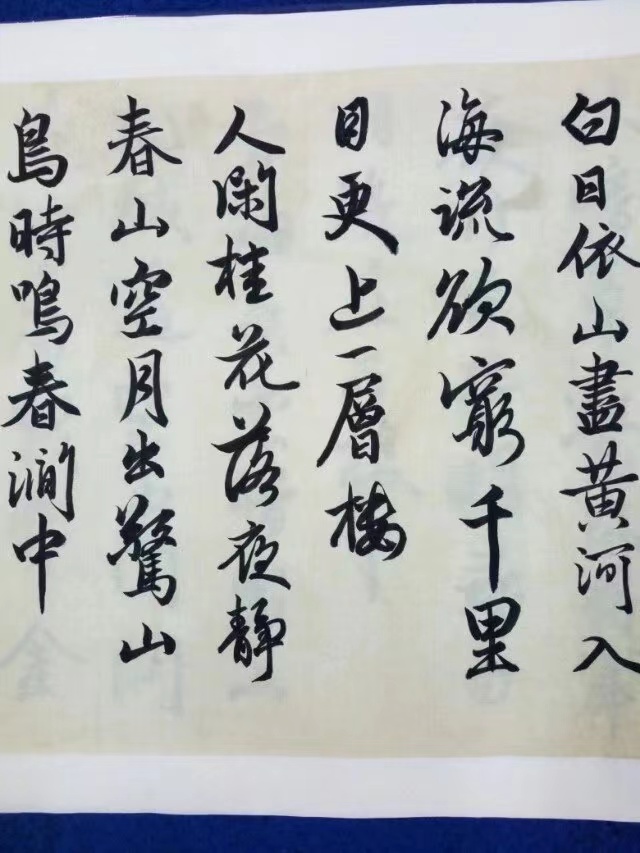 白日依山盡黃河入
海流欲窮千里
目更上一層樓
人閑桂花落夜靜
春山空月出驚山
鳥時鳴春澗中